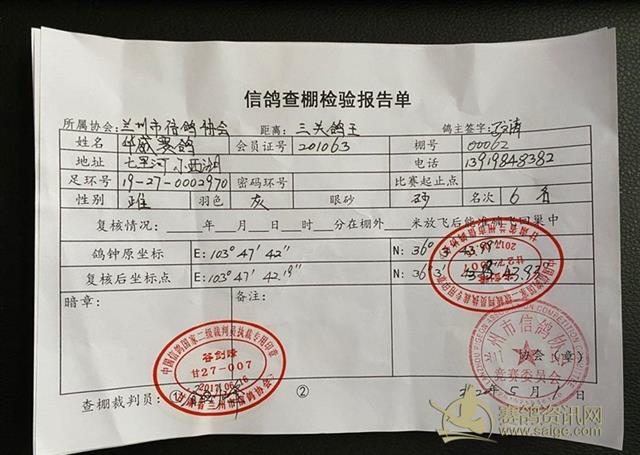 信鸽查棚检验报告单
所属协会:兰州市信鸽协会 距离:三关鸽王 鸽主签字:
姓名 华威赛鸽 会员证号 201063 棚号 00062
地址 七里河小西湖 电话 13919848382
足环号 19-27-0002970 密码环号 比赛起止点
性别 雄 羽色 灰 眼砂 砂 名次 6名
复核情况: 年 月 日 时 分在棚外 米放飞后能准确飞回巢中
鸽钟原坐标 E:103°47′42″ N:36°
复核后坐标点 E:103°47′42.19″ N:36°3′
暗章: 备注:
中国信鸽国家二级裁判员执裁专用印章
谷剑峰
甘27-007
2017.06.16
兰州市信鸽协会
协会(章)
竞赛委员会
年5月 日
查棚裁判员:① ②
赛鸽资讯网
www.saige.com